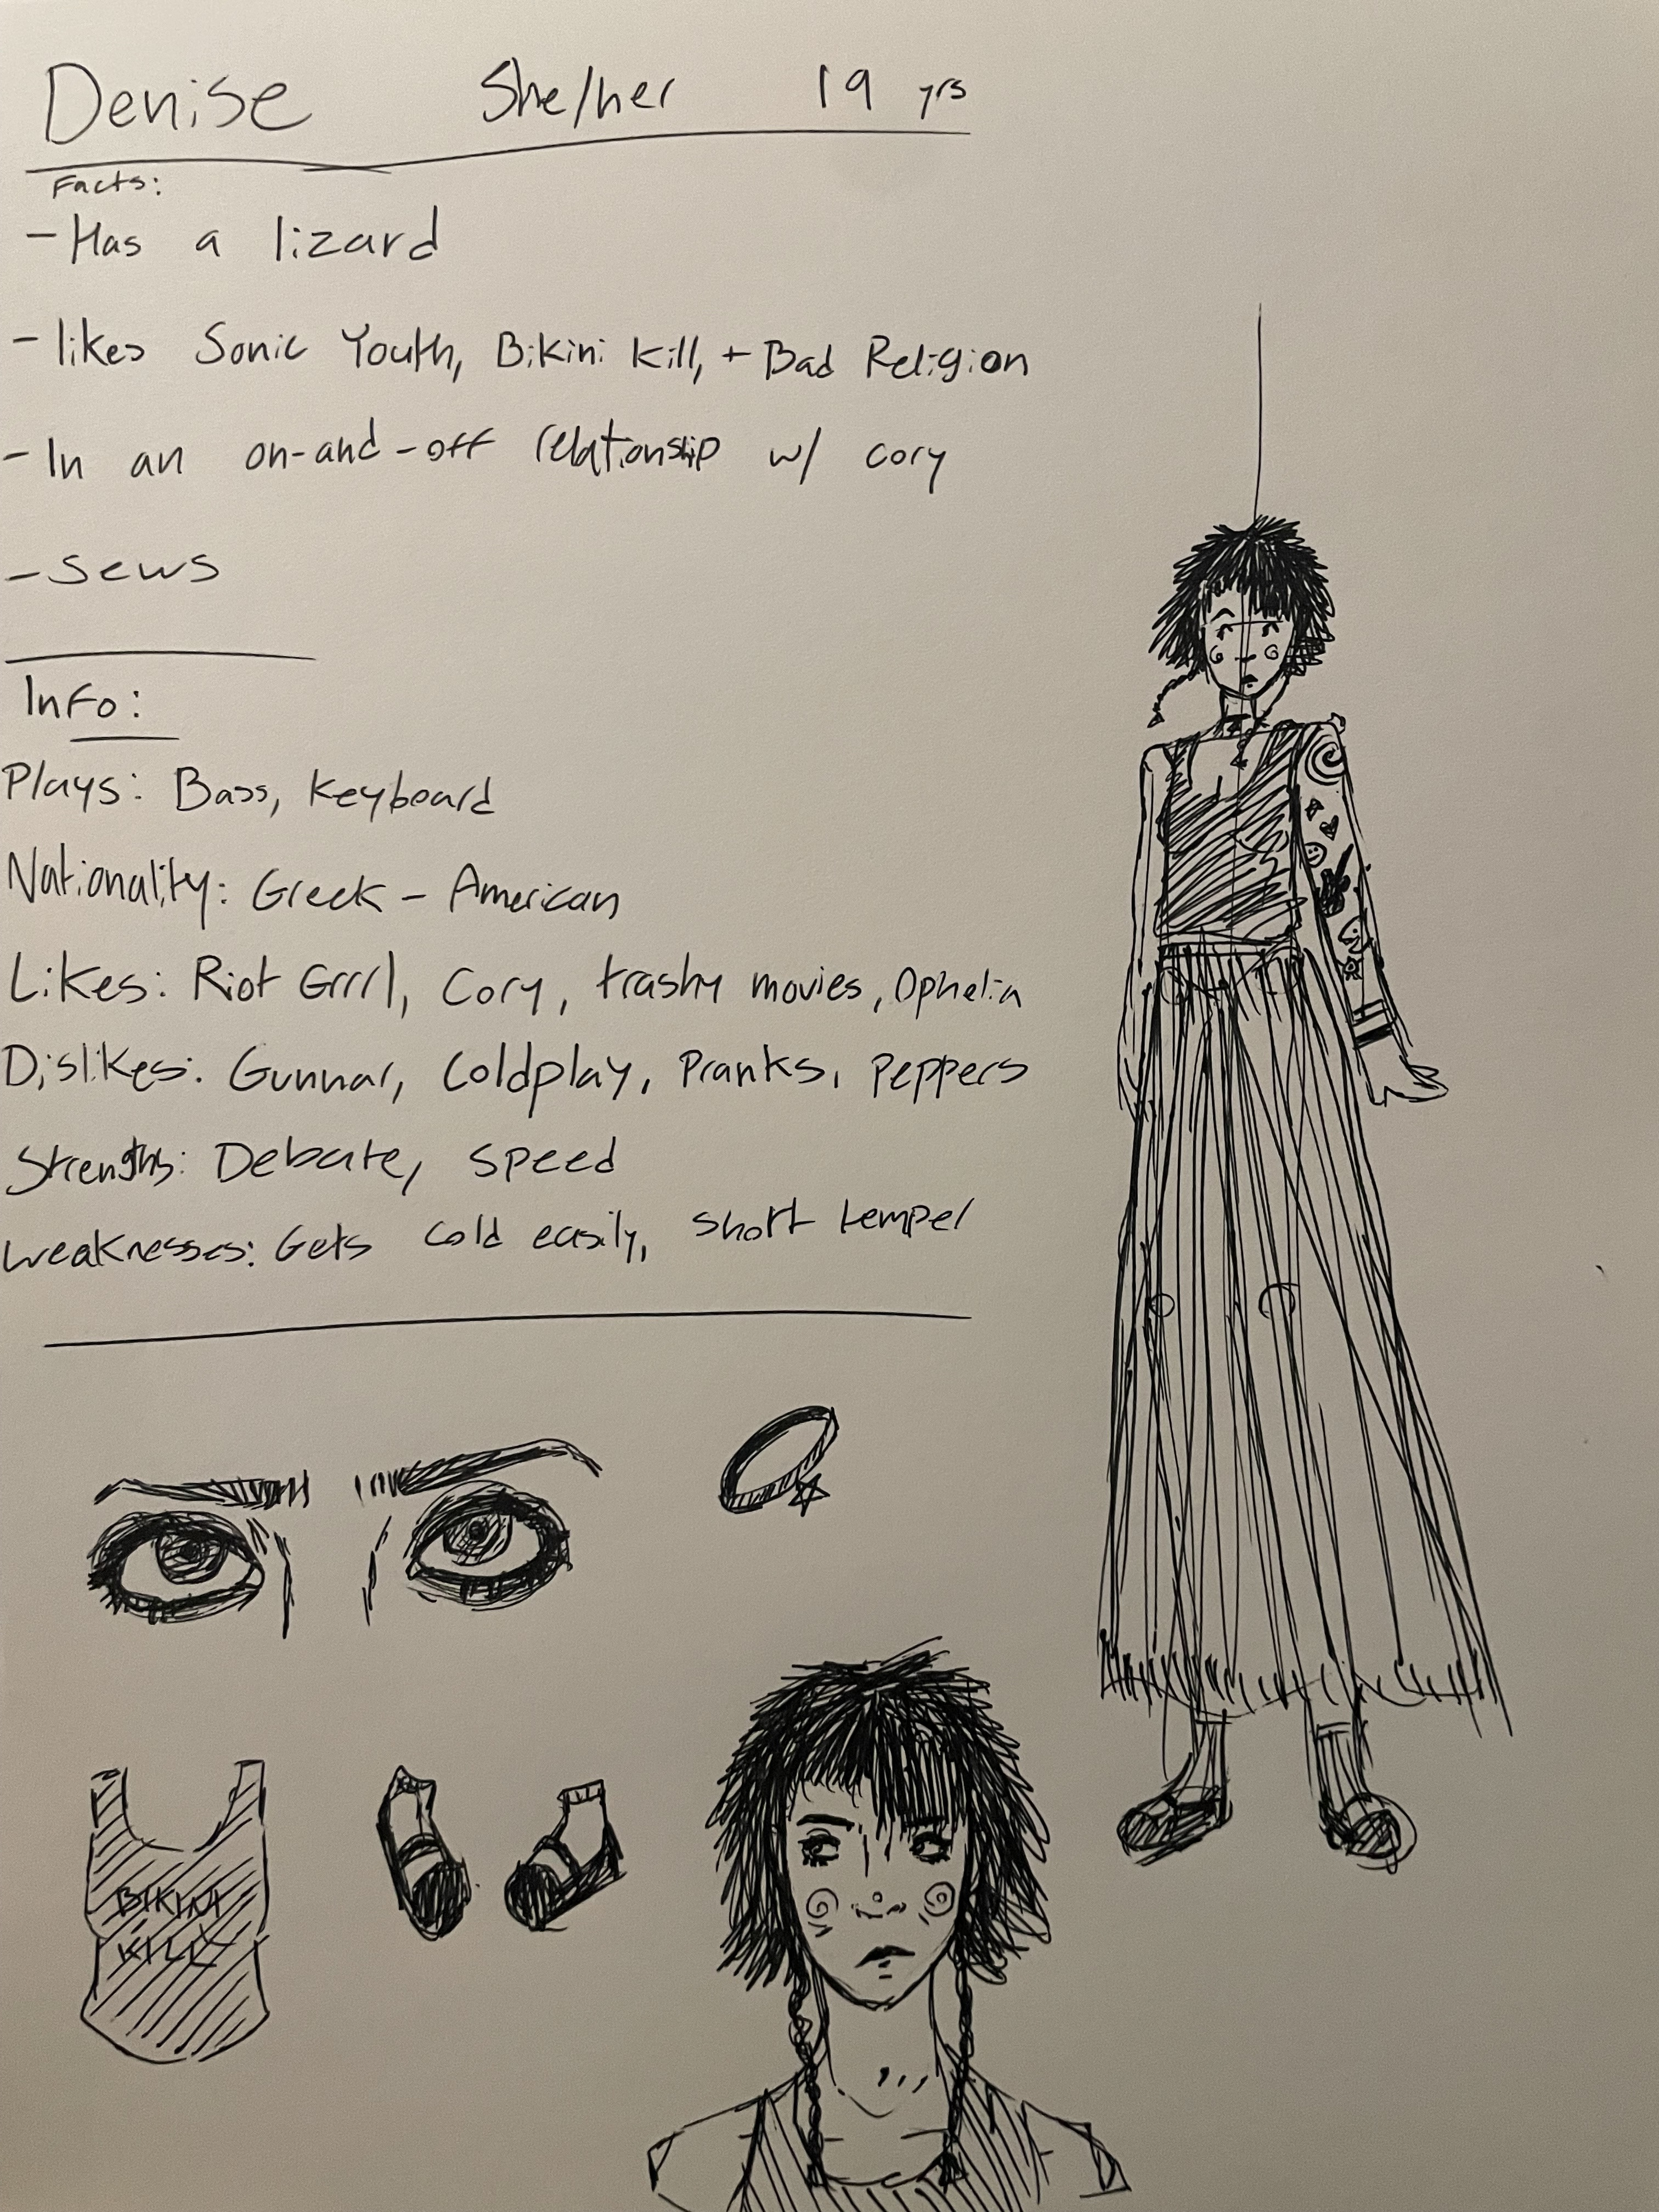 Denise She/her 19 yrs
Facts:
- Has a lizard
- likes Sonic Youth, Bikini Kill, + Bad Religion
- In an on-and-off relationship w/ Cory
- Sews
Info:
Plays: Bass, Keyboard
Nationality: Greek - American
Likes: Riot Grrrl, Cory, trashy movies, Ophelia
Dislikes: Gunnar, Coldplay, Pranks, Peppers
Strengths: Debate, Speed
Weaknesses: Gets cold easily, short temper
BIKINI
KILL